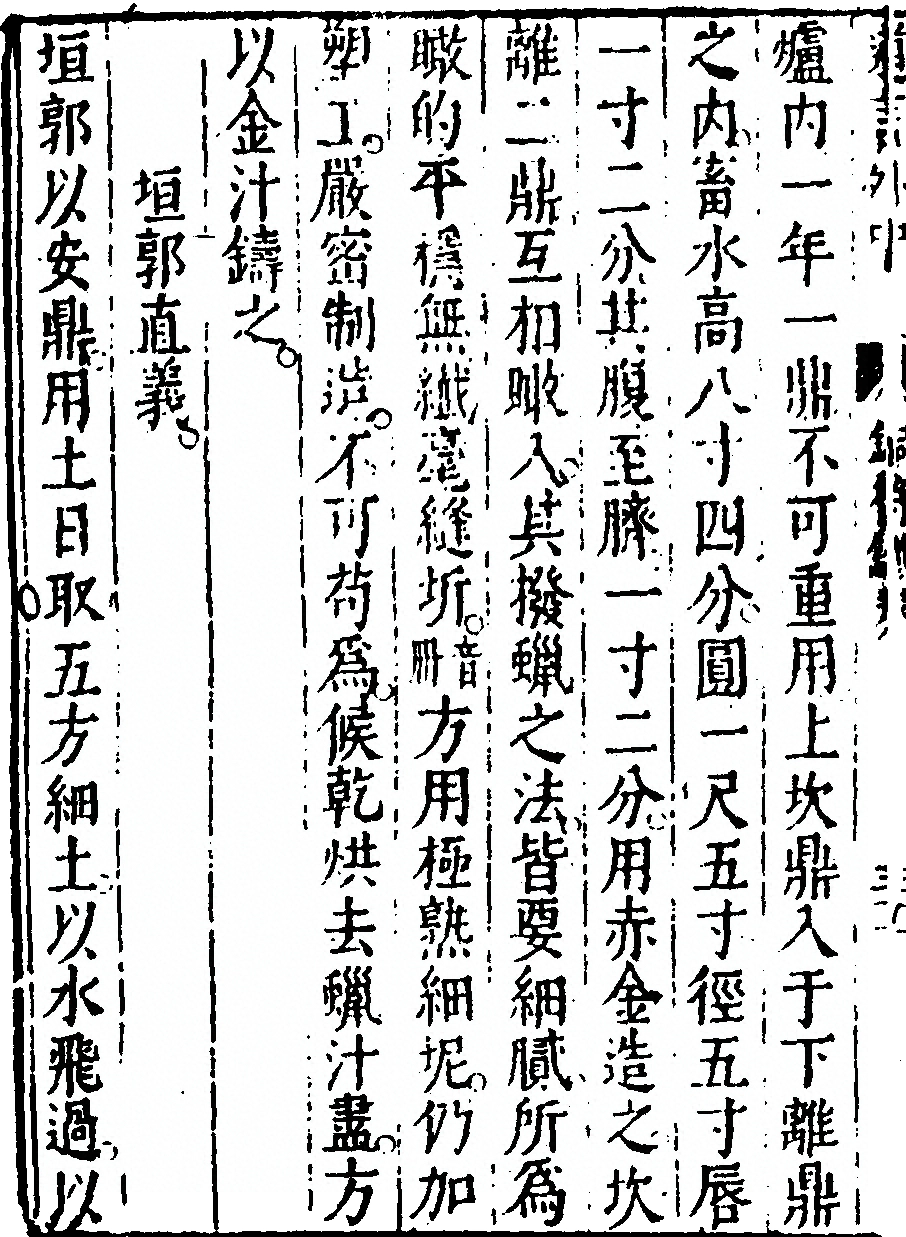 爐內一年一鼎不可重用上坎鼎入于下離鼎
之內畜水高八寸四分圓一尺五寸徑五寸唇
一寸二分其腹至臍一寸二分用赤金造之坎
離二鼎互相瞰入其撥蠟之法皆要細膩所爲
瞰的平穩無纖毫縫圻音冊方用極熟細坭仍加
塑工嚴密制造不可茍爲候乾烘去蠟汁盡方
以金汁鑄之
垣郭直義
垣郭以安鼎用土日取五方細土以水飛過以